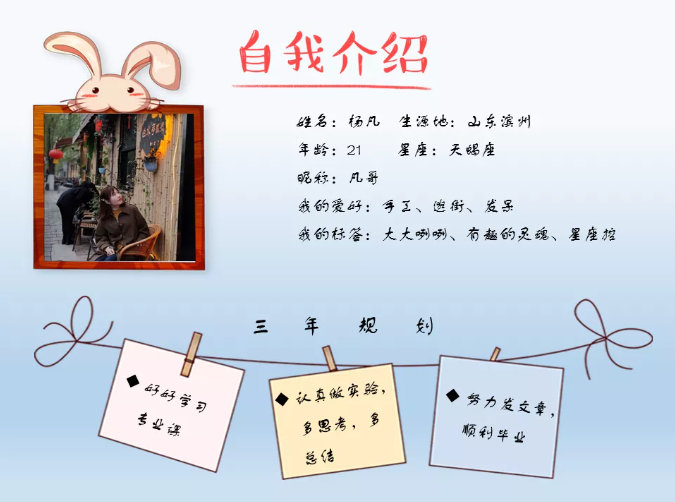 自我介绍
姓名：杨凡 生源地：山东滨州
年龄：21 星座：天蝎座
昵称：凡哥
我的爱好：手工、逛街、发呆
我的标签：大大咧咧、有趣的灵魂、星座控
三年规划
◆好好学习
专业课
◆认真做实验，
多思考，多
总结
◆努力发文章，
顺利毕业